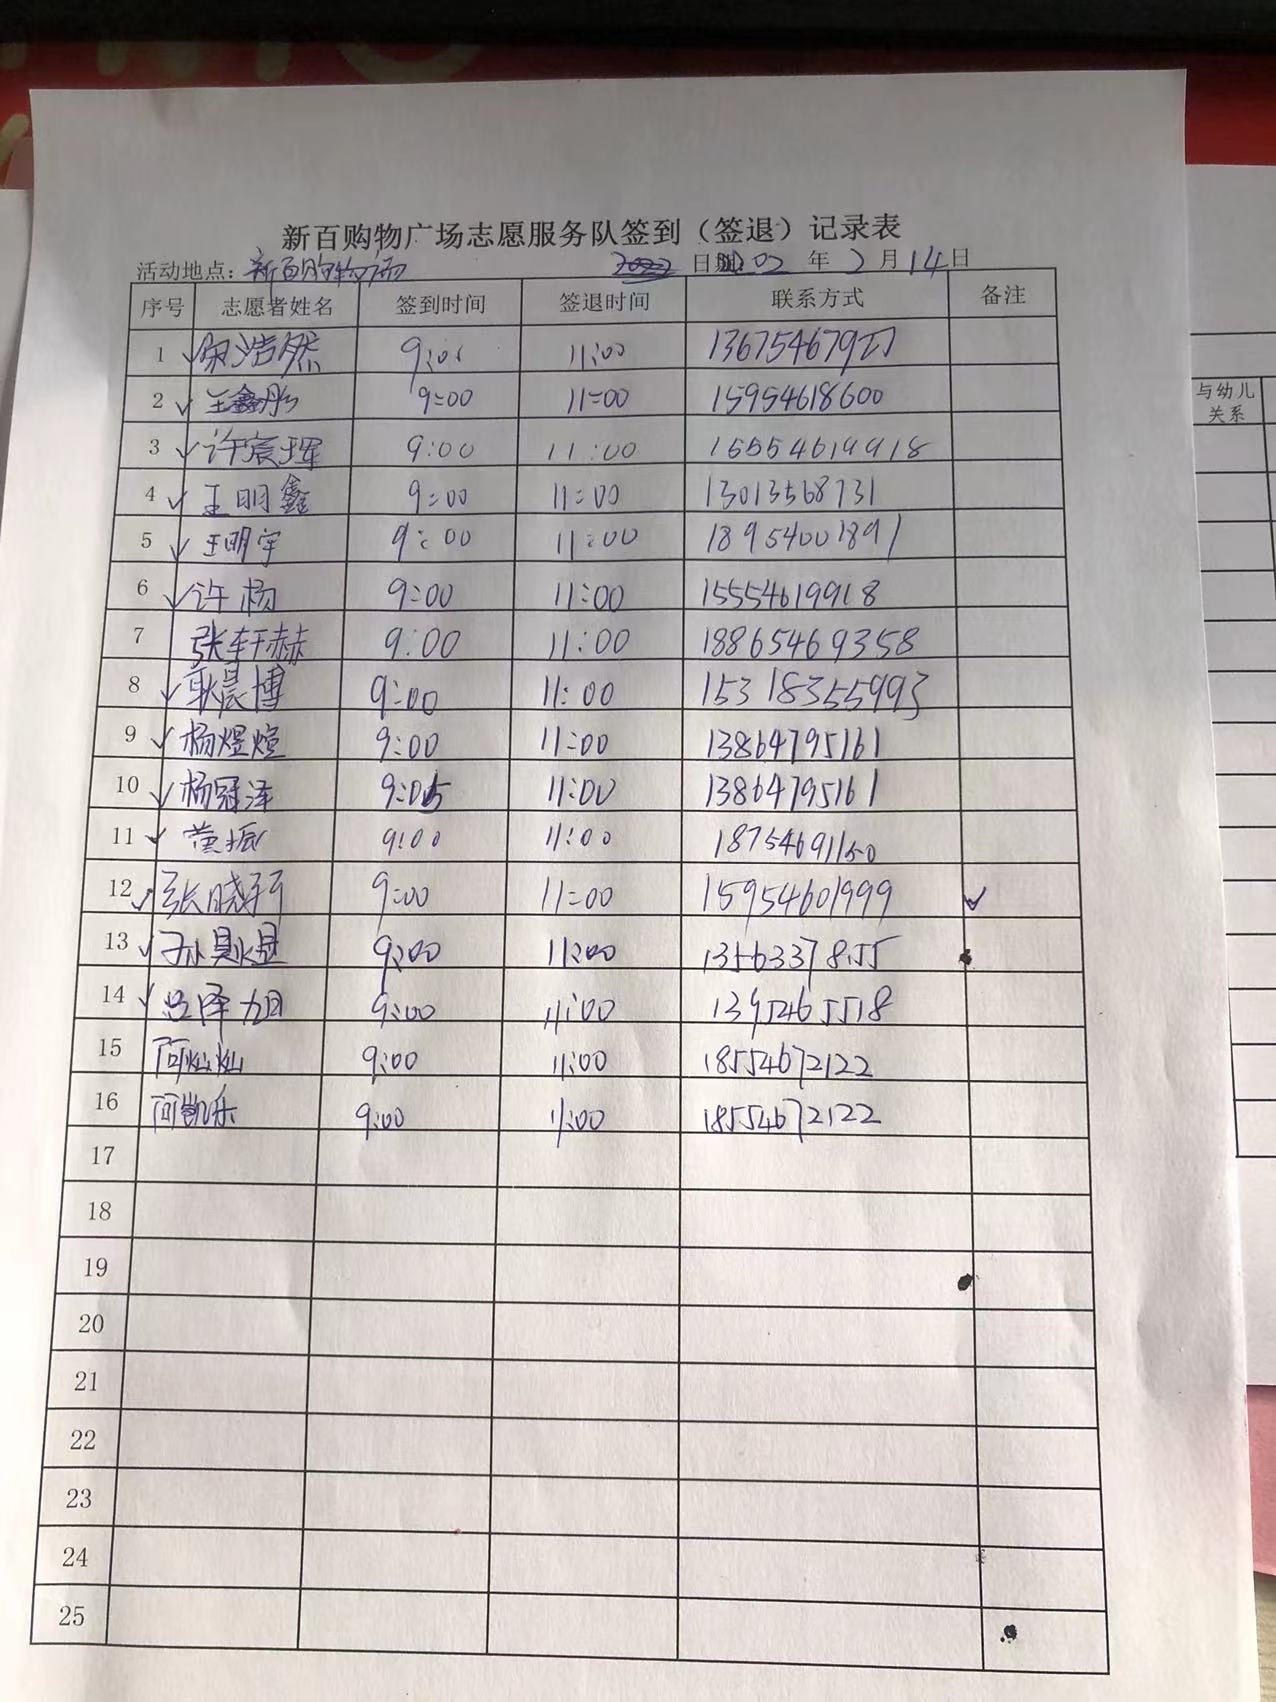 新百购物广场志愿服务队签到（签退）记录表
活动地点：新百购物广场 日期: 年 2 月 14 日
序号 志愿者姓名 签到时间 签退时间 联系方式 备注
1 ✓ 浩然 11:00
2 ✓ 王鑫彤 9:00 11:00 15954618600
3 ✓ 许宸珲 9:00 11:00 15554619918
4 ✓ 王明鑫 9:00 11:00 13013568731
5 ✓ 王明宇 9:00 11:00 18954001891
6 ✓ 许杨 9:00 11:00 15554619918
7 张轩赫 9:00 11:00 18865469358
8 ✓ 耿晨博 9:00 11:00 15318355993
9 ✓ 杨煜煊 9:00 11:00 13864795161
10 ✓ 杨冠泽 9:05 11:00 13864795161
11 ✓ 董振 9:00 11:00 18754691150
12 ✓ 张晓轩 9:00 11:00 15954601999 ✓
13 ✓ 孙昊煜 9:00 11:00 13563378155
14 ✓ 吕泽旭 9:00 11:00 13954655518
15 灿灿 9:00 11:00 18554672122
16 凯乐 9:00 11:00 18554672122
17
18
19
20
21
22
23
24
25
与幼儿
关系